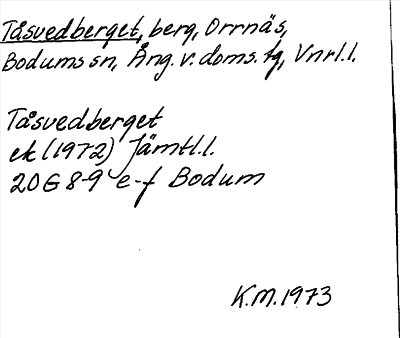 Tåsvedberget, berg, Orrnäs,
Bodums sn, Ång. v. doms. tg, Vnrl. l.
Tåsvedberget
ek (1972) Jämtl. l.
20 G 8-9 e-f Bodum
K.M. 1973